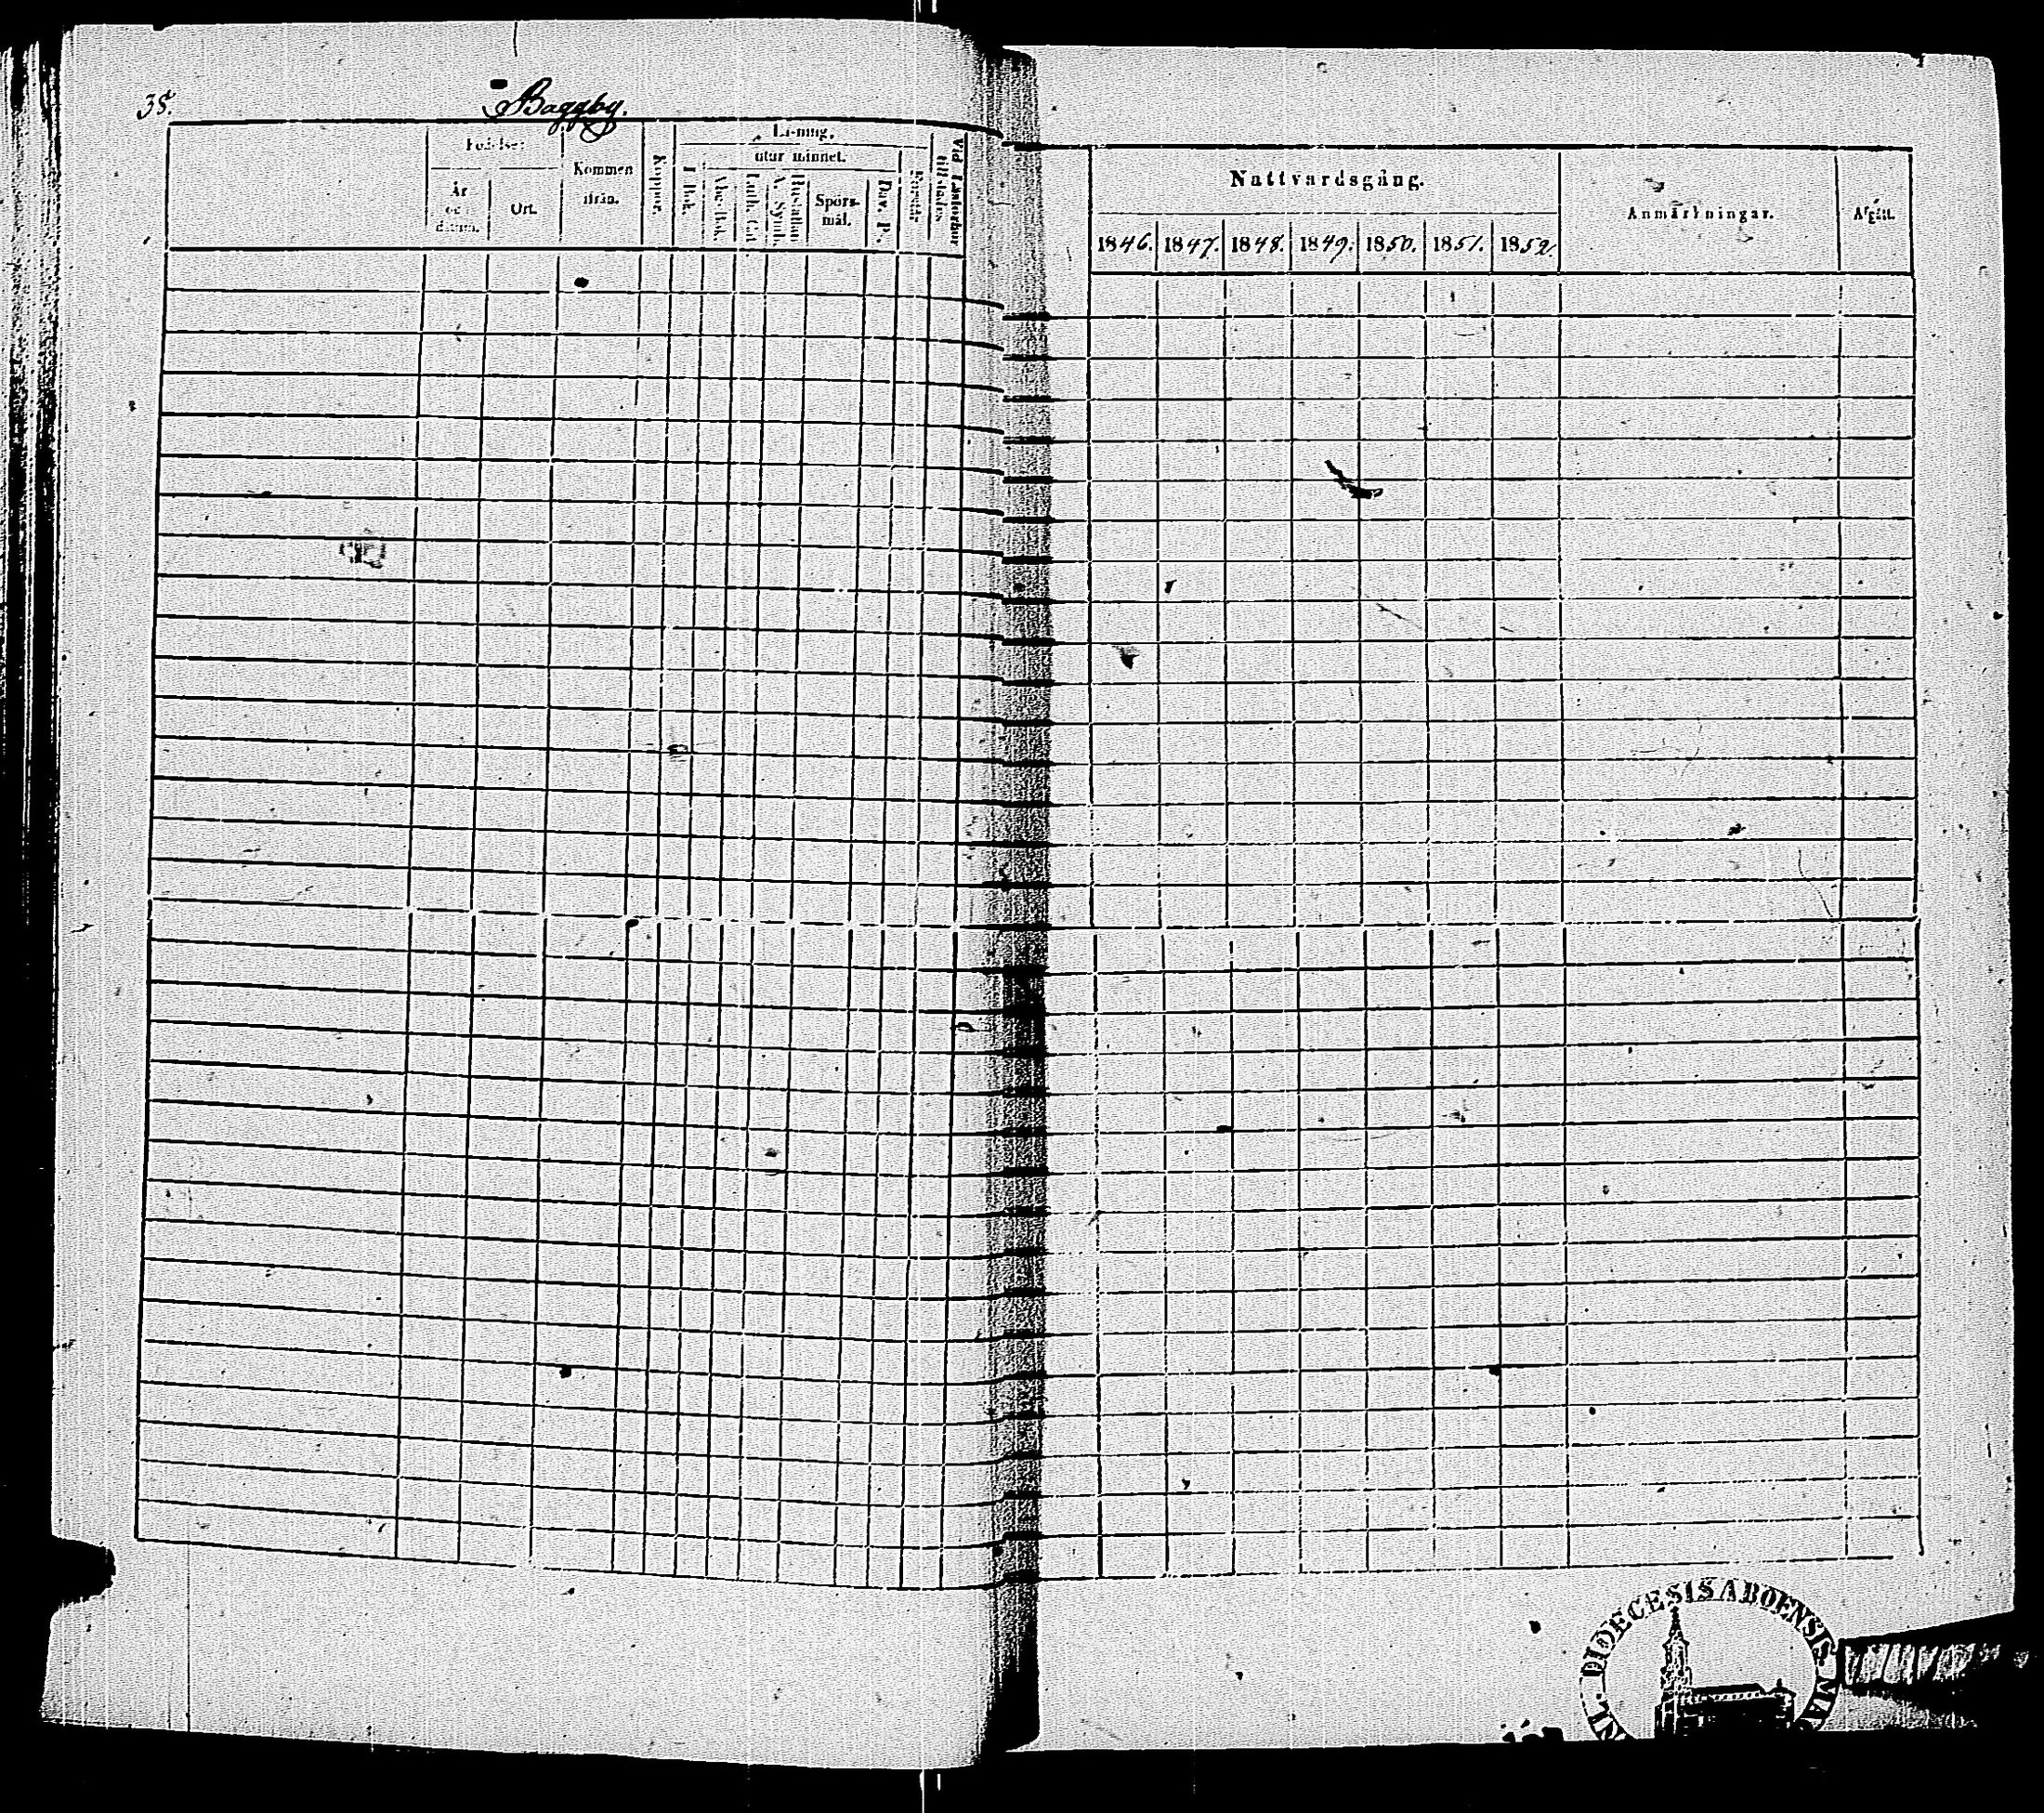 38.
Baggby.
Födelse:
Läsning,
utur minnet.
År och datum.
Ort.
Kommen ifrån.
Koppor.
I Bok.
Abc-Bok.
Luth. Cat.
Hustaflan A. Symb.
Spörs-mål.
Dav. P.
Vid Läsförhör
Nattvardsgång.
Anmärkningar.
Afgått.
1846. 1847. 1848. 1849. 1850. 1851. 1852.
DIOECESIS ABOENSIS